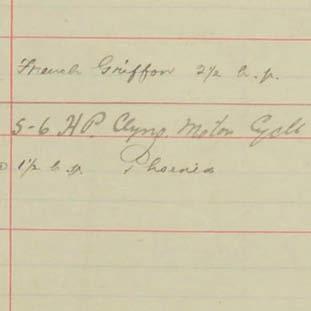 French Griffon 2½ h.p.
5-6 HP. Clyno Motor Cycle
1½ h.p. Phoenix